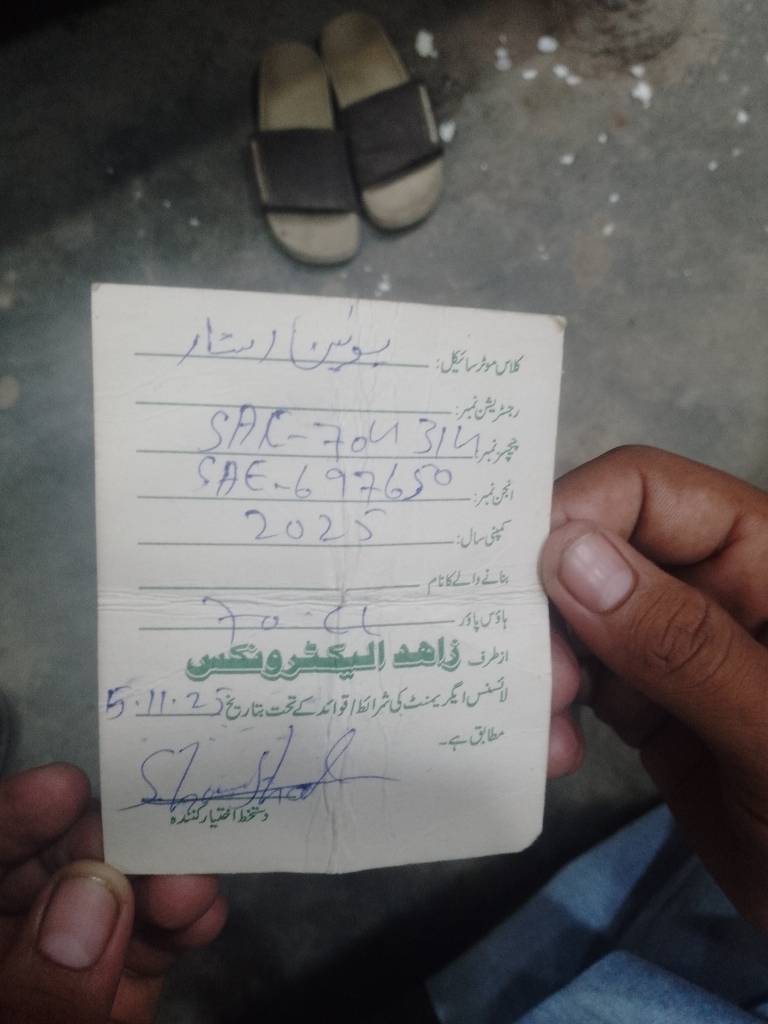 کلاس موٹر سائیکل: یونین اسٹار
رجسٹریشن نمبر:
چیچز نمبر: SAK-704314
انجن نمبر: SAE-697650
کمپنی سال: 2025
بنانے والے کا نام
ہاؤس پاور 70-CC
از طرف زاہد الیکٹرونکس
لائسنس ایگریمنٹ کی شرائط/قوائد کے تحت بتاریخ 5.11.25
مطابق ہے۔
دستخط اختیار کنندہ